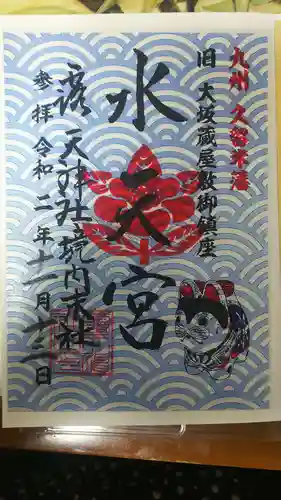 九州 久留米藩
旧 大坂蔵屋敷御鎮座
水天宮
露天神社境内末社
参拝 令和二年十一月十三日